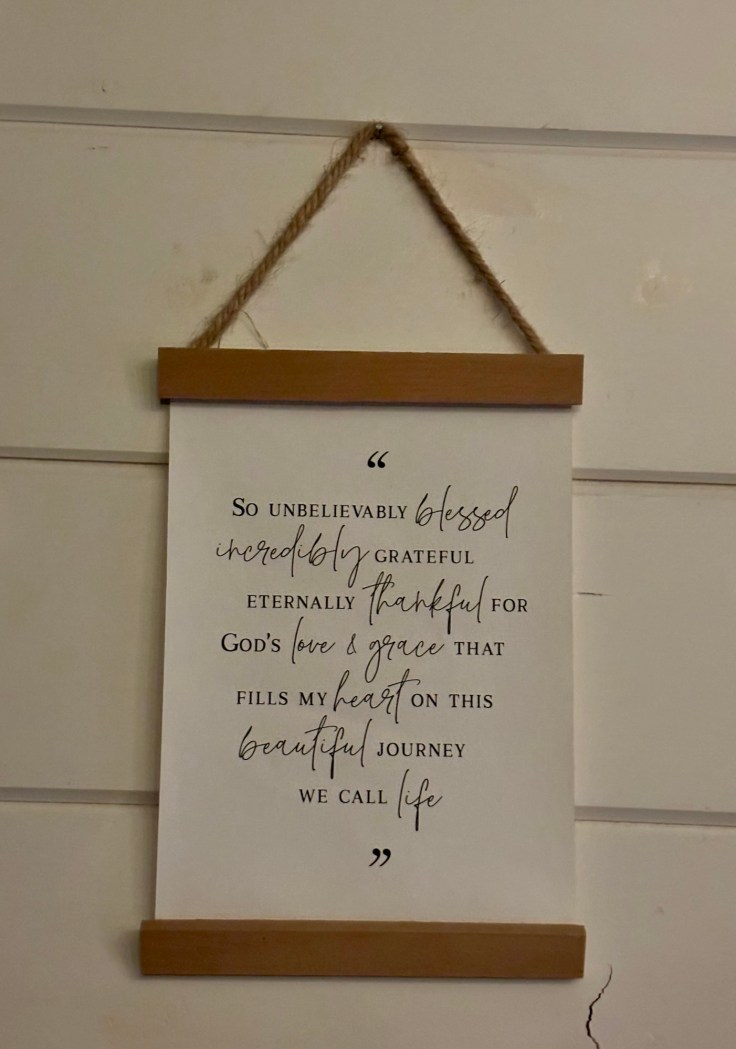 “
So unbelievably blessed
incredibly grateful
eternally thankful for
God's love & grace that
fills my heart on this
beautiful journey
we call life
”